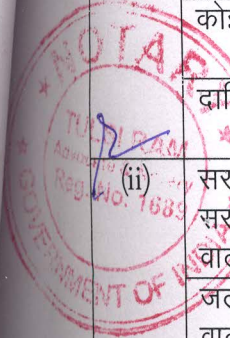 को
दा
NOTAR
TULSI RAM
Advocate
Reg. No. 1689
GOVERNMENT OF INDIA
(ii)
सर
सर
वाल
जल
वाल